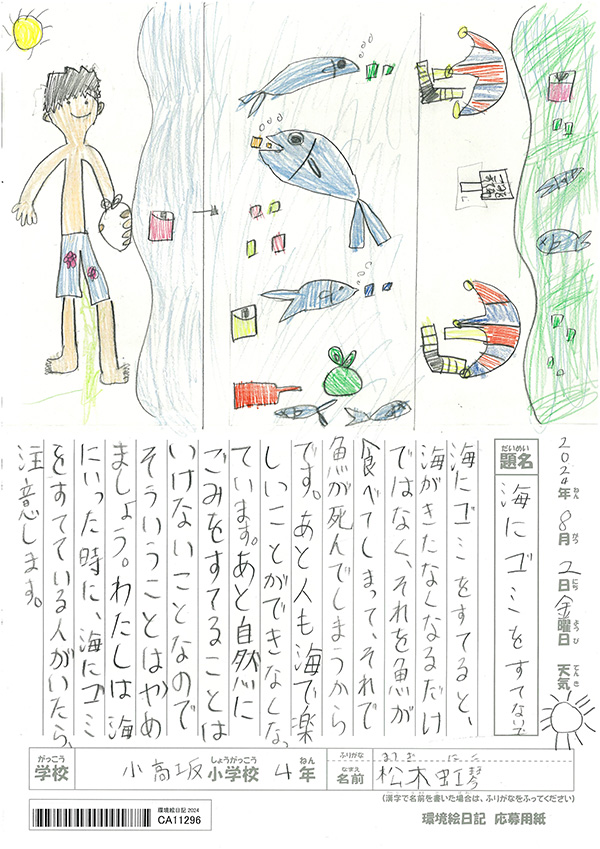 2024年 8月 2日 金曜日 天気
ねん がつ にち ようび てんき
だいめい
題名 海にゴミをすてないで
海にゴミをすてると、
海がきたなくなるだけ
ではなく、それを魚が
食べてしまって、それで
魚が死んでしまうから
です。あと人も海で楽
しいことができなくなっ
ています。あと自然に
ごみをすてることは
いけないことなので
そういうことはやめ
ましょう。わたしは海
にいった時に、海にゴミ
をすてている人がいたら、
注意します。
がっこう しょうがっこう ねん ふりがな
学校 小高坂小学校 4年
なまえ
名前 松木虹琴
(漢字で名前を書いた場合は、ふりがなをふってください)
環境絵日記 2024
CA11296
環境絵日記 応募用紙